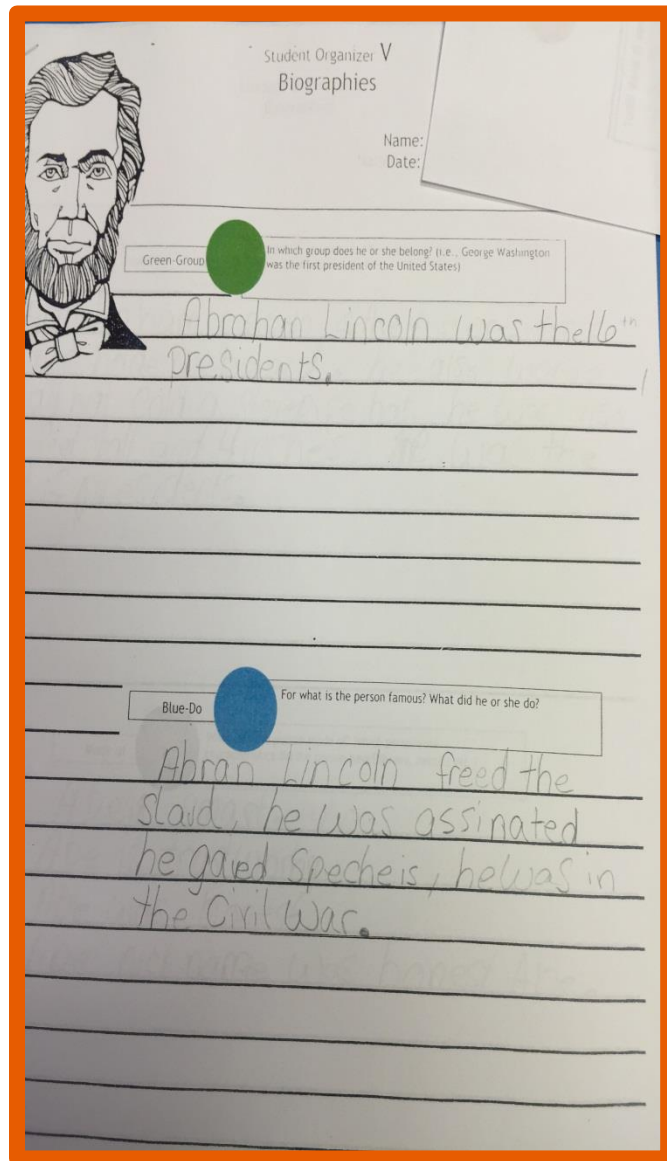 Student Organizer V
Biographies
Name:
Date:
Green-Group
In which group does he or she belong? (i.e., George Washington
was the first president of the United States)
Abrahan Lincoln was the16th
presidents.
Blue-Do
For what is the person famous? What did he or she do?
Abran Lincoln freed the
slavd, he was assinated
he gaved Specheis, he was in
the Civil War.